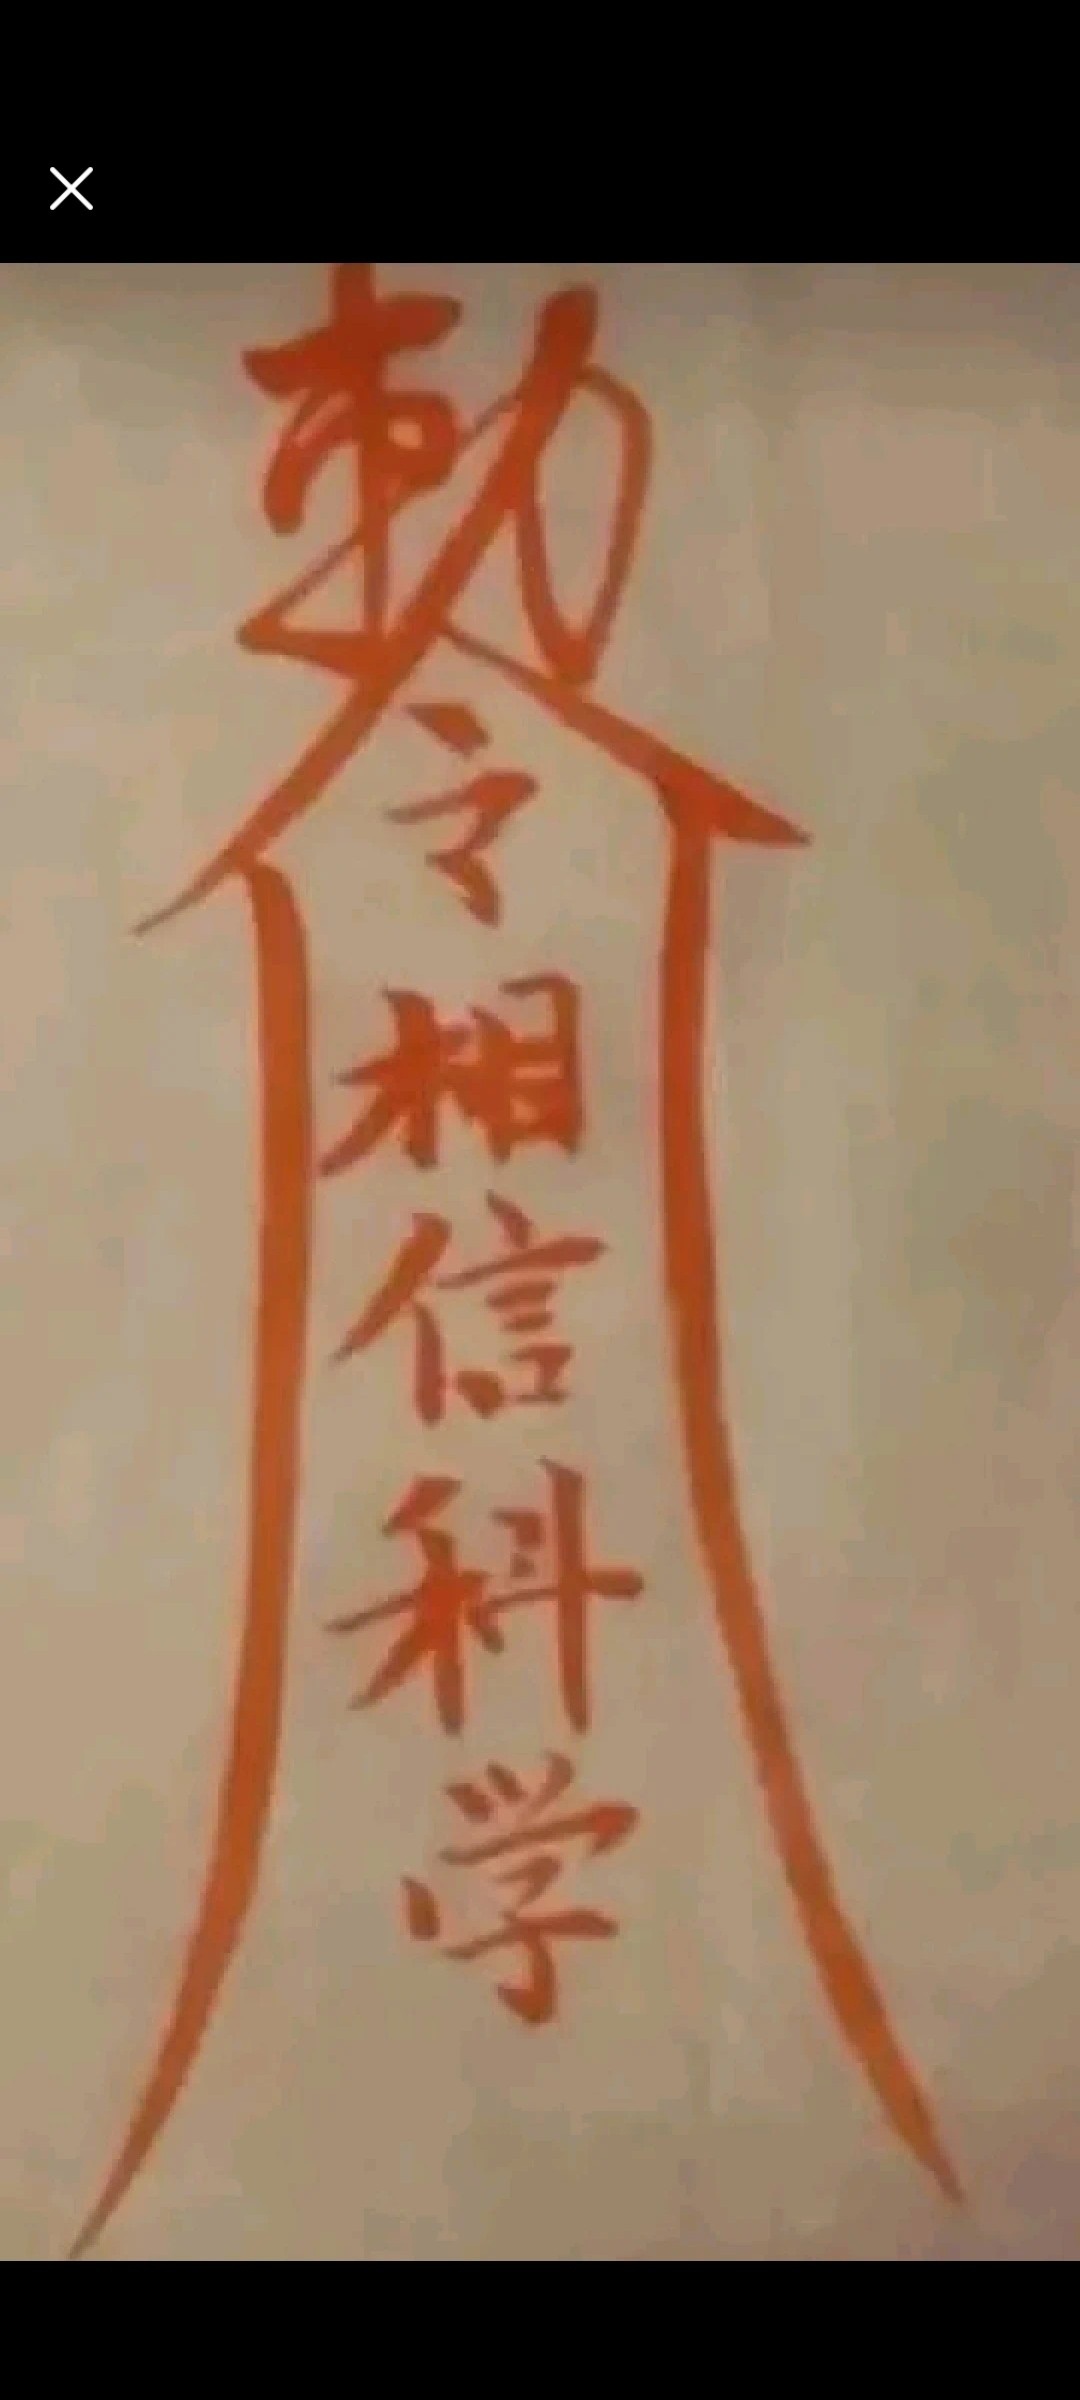 敕令
相信科学